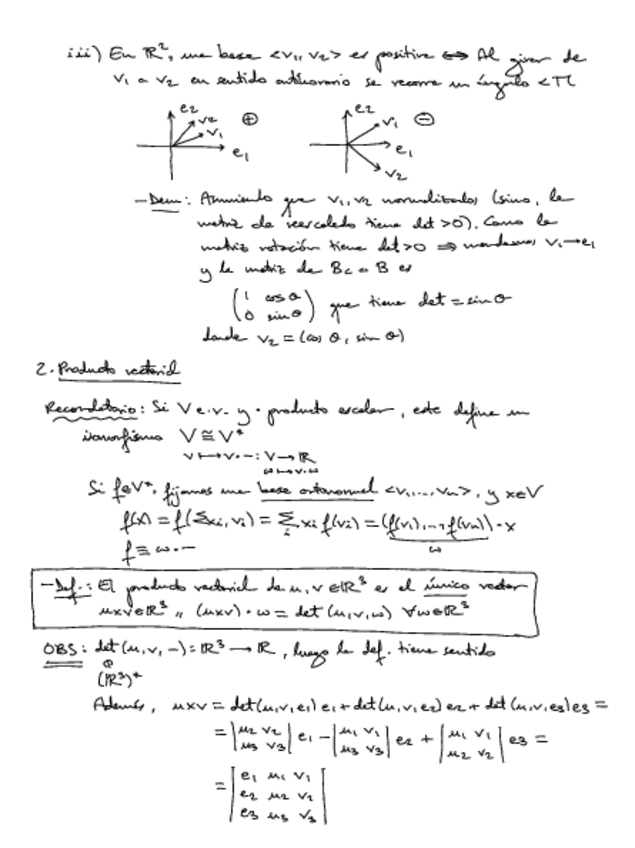 iii) En ℝ², una base <v₁, v₂> es positiva ⟺ Al girar de
v₁ a v₂ en sentido antihorario se recorre un ángulo < π
e₂ v₂ v₁ e₁ ⊕
e₂ v₁ e₁ v₂ ⊖
- Dem: Asumiendo que v₁, v₂ normalizados (sino, la
matriz de reescalado tiene det > 0). Como la
matriz rotación tiene det > 0 ⟹ mandamos v₁ → e₁
y la matriz de Bc a B es
( 1 cos θ
0 sin θ ) que tiene det = sin θ
donde v₂ = (cos θ, sin θ)
2. Producto vectorial
Recordatorio: Si V e.v. y · producto escalar, este define un
isomorfismo V ≅ V*
v ⟼ v·– : V → ℝ
ω ⟼ v·ω
Si f∈V*, fijamos una base ortonormal <v₁, ..., vₙ>, y x∈V
f(x) = f(Σxᵢ, vᵢ) = Σᵢ xᵢ f(vᵢ) = (f(v₁), ..., f(vₙ)) · x
f ≡ ω·– ω
- Def.: El producto vectorial de u, v ∈ ℝ³ es el único vector
u×v ∈ ℝ³ ,, (u×v) · ω = det (u, v, ω) ∀ω∈ℝ³
OBS: det (u, v, –): ℝ³ → ℝ, luego la def. tiene sentido
(ℝ³)*
Además, u×v = det(u,v,e₁) e₁ + det(u,v,e₂) e₂ + det(u,v,e₃) e₃ =
= |u₂ v₂ / u₃ v₃| e₁ – |u₁ v₁ / u₃ v₃| e₂ + |u₁ v₁ / u₂ v₂| e₃ =
= | e₁ u₁ v₁
e₂ u₂ v₂
e₃ u₃ v₃ |